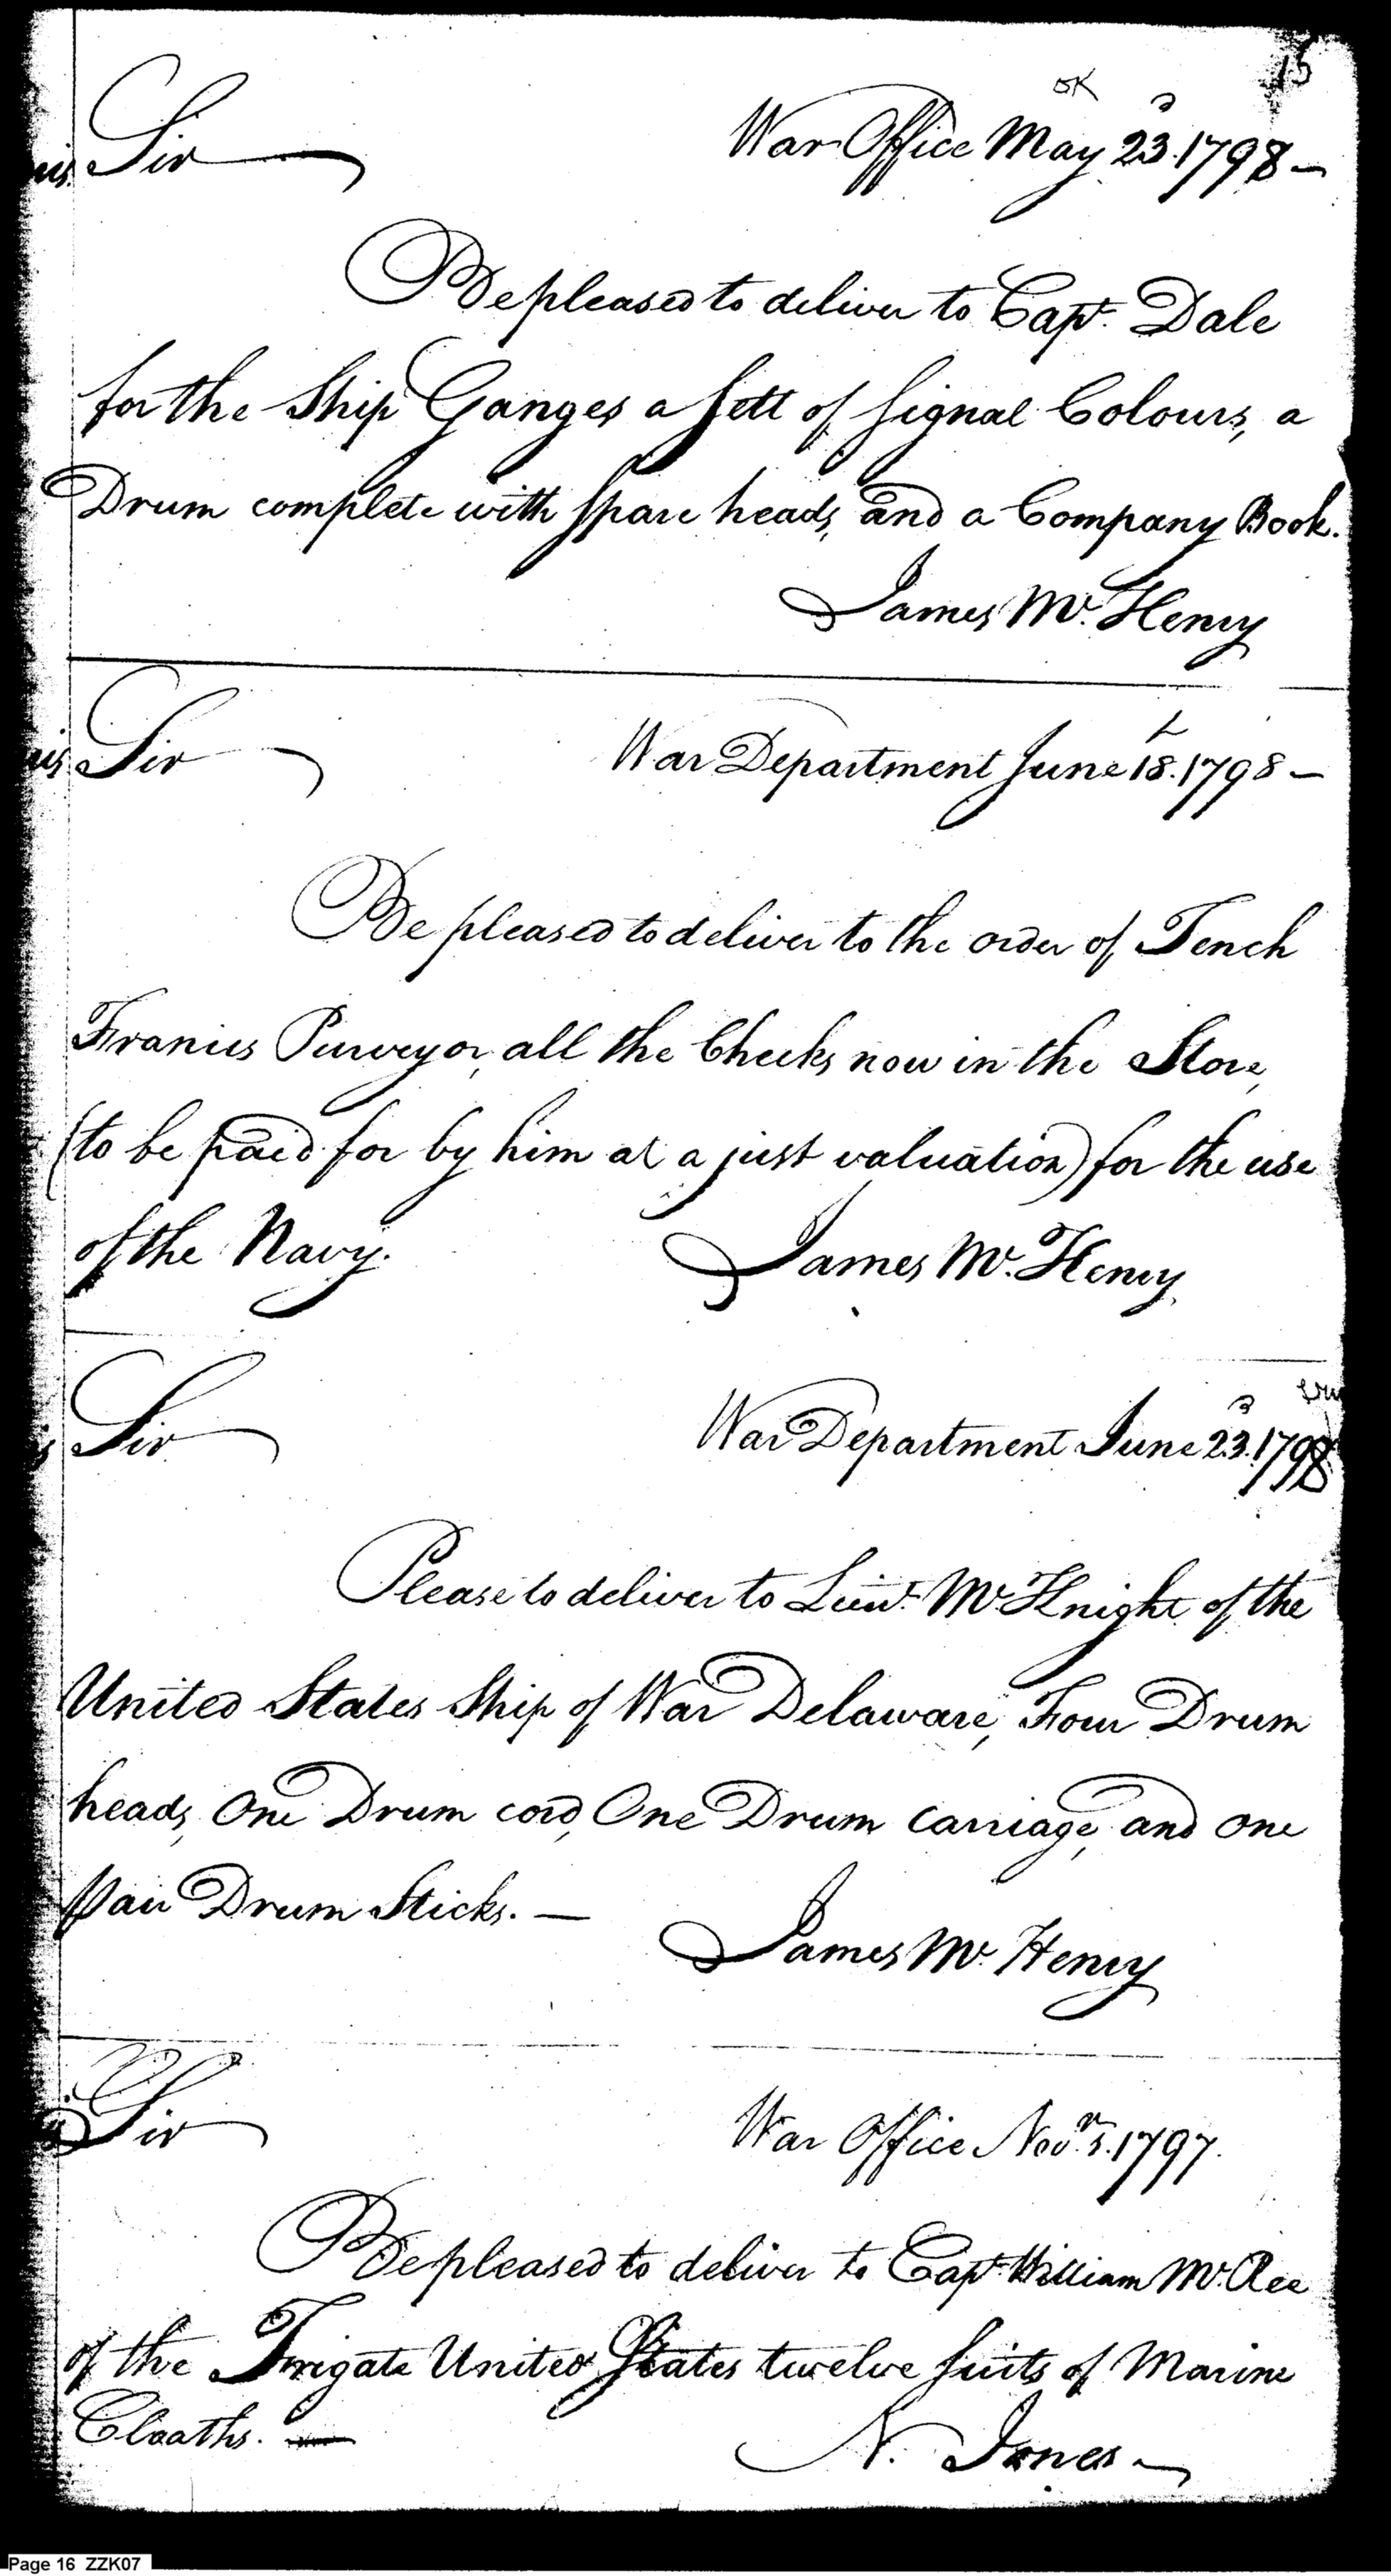 15
OK
Sir War Office May 23. 1798 —
Be pleased to deliver to Capt. Dale
for the Ship Ganges a Sett of Signal Colours, a
Drum complete with Spare heads, and a Company Book.
James Mc. Henry
Sir War Department June 18. 1798 —
Be pleased to deliver to the order of Tench
Francis Purveyor, all the Checks now in the Store,
(to be paid for by him at a just valuation) for the use
of the Navy. James Mc. Henry
Sir War Department June 23. 1798
Please to deliver to Lieut. McKnight of the
United States Ship of War Delaware, Four Drum
heads, One Drum cord, One Drum carriage, and one
Pair Drum Sticks. — James Mc. Henry
Sir War Office Novr. 5. 1797.
Be pleased to deliver to Capt. William Mc. Ree
of the Frigate United States twelve Suits of Marine
Cloaths. — N. Jones —
Page 16 ZZK07